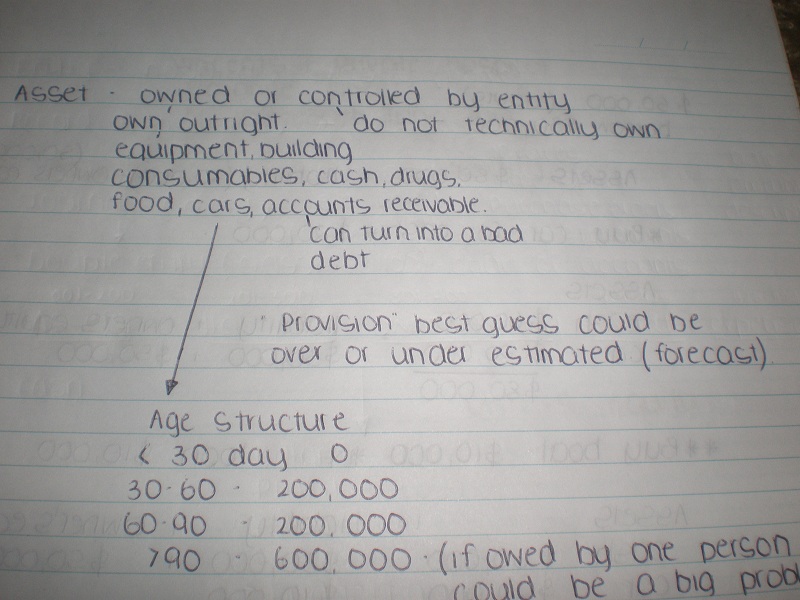 Asset - owned or controlled by entity
own outright. do not technically own
equipment, building
consumables, cash, drugs,
food, cars, accounts receivable.
can turn into a bad
debt
"Provision" best guess could be
over or under estimated (forecast)
Age Structure
< 30 day 0
30-60 - 200,000
60-90 - 200,000
>90 - 600,000 - (if owed by one person
could be a big prob